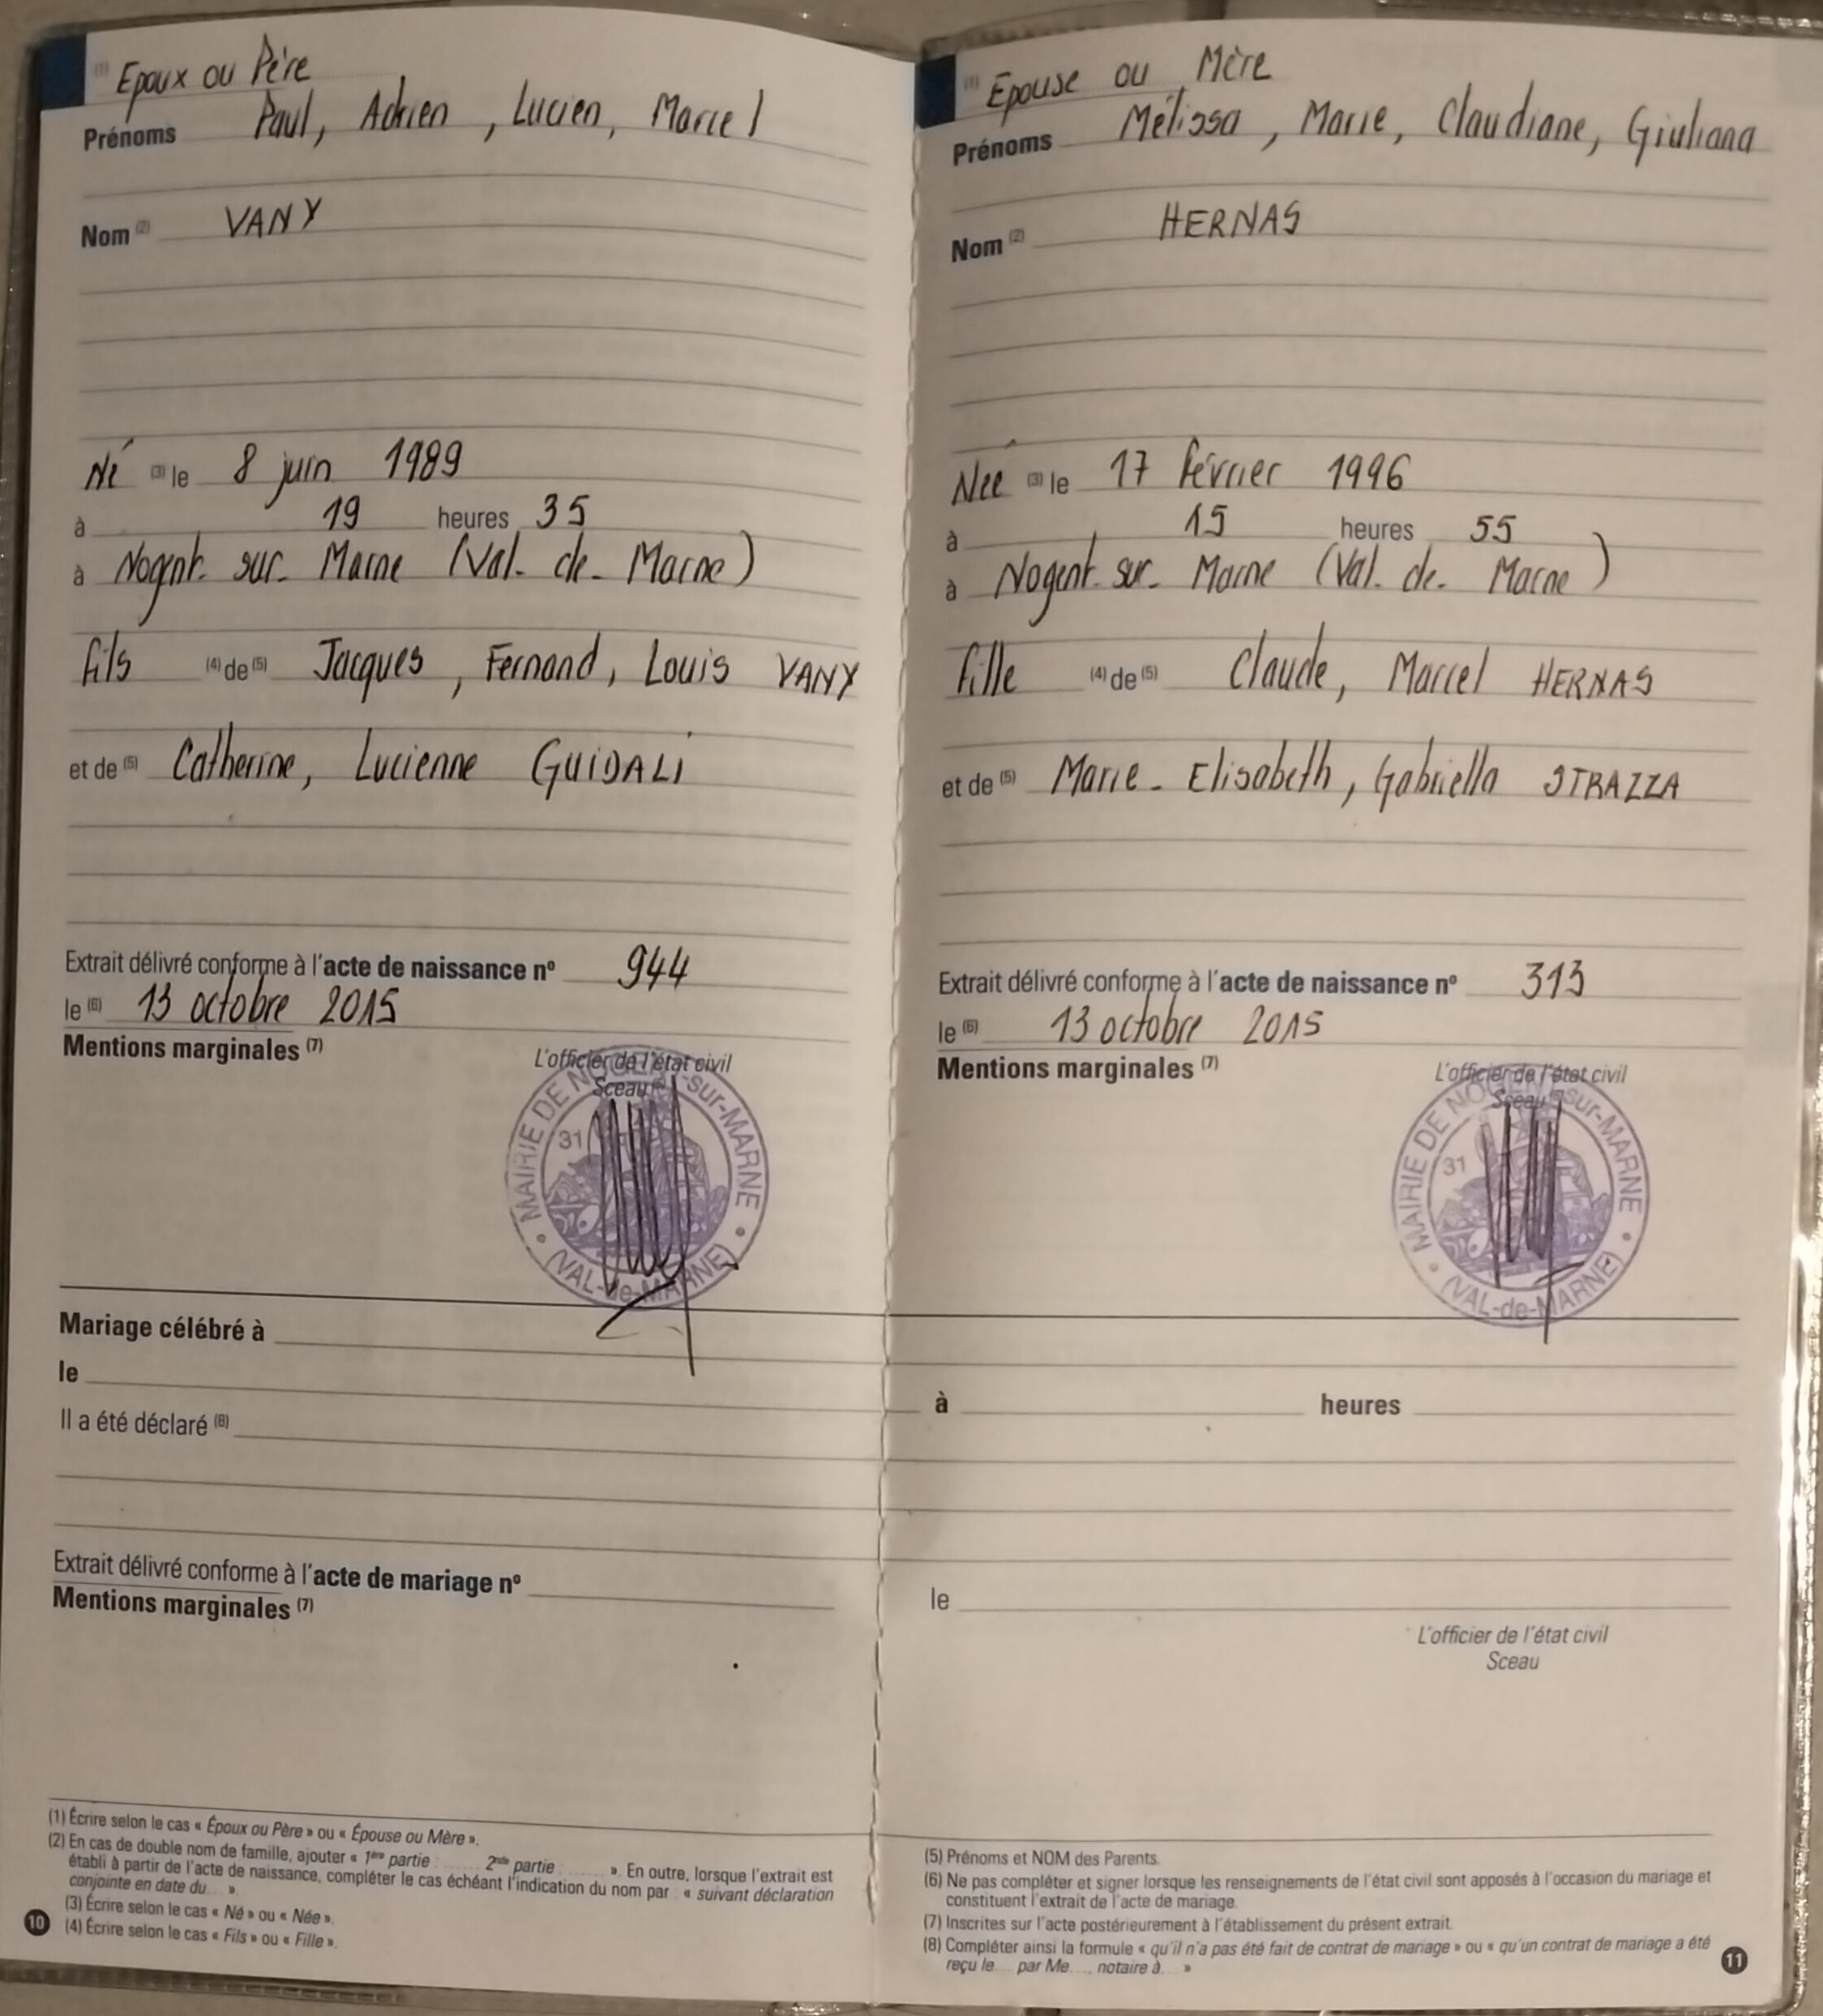 (1) Epoux ou Père
Prénoms Paul, Adrien, Lucien, Marcel
Nom (2) VANY
Né (3) le 8 juin 1989
à 19 heures 35
à Nogent-sur-Marne (Val-de-Marne)
fils (4) de (5) Jacques, Fernand, Louis VANY
et de (5) Catherine, Lucienne GUIDALI
Extrait délivré conforme à l'acte de naissance nº 944
le (6) 13 octobre 2015
Mentions marginales (7)
L'officier de l'état civil
Sceau
MAIRIE DE NOGENT-sur-MARNE
31
(VAL-de-MARNE)
(1) Epouse ou Mère
Prénoms Mélissa, Marie, Claudiane, Giuliana
Nom (2) HERNAS
Née (3) le 17 février 1996
à 15 heures 55
à Nogent-sur-Marne (Val-de-Marne)
fille (4) de (5) Claude, Marcel HERNAS
et de (5) Marie-Elisabeth, Gabriella STRAZZA
Extrait délivré conforme à l'acte de naissance nº 313
le (6) 13 octobre 2015
Mentions marginales (7)
L'officier de l'état civil
Sceau
MAIRIE DE NOGENT-sur-MARNE
31
(VAL-de-MARNE)
Mariage célébré à
le à heures
Il a été déclaré (8)
Extrait délivré conforme à l'acte de mariage nº le
Mentions marginales (7)
L'officier de l'état civil
Sceau
(1) Écrire selon le cas « Époux ou Père » ou « Épouse ou Mère ».
(2) En cas de double nom de famille, ajouter « 1ère partie : ...... 2nde partie : ...... ». En outre, lorsque l'extrait est
établi à partir de l'acte de naissance, compléter le cas échéant l'indication du nom par : « suivant déclaration
conjointe en date du... ».
(3) Écrire selon le cas « Né » ou « Née ».
(4) Écrire selon le cas « Fils » ou « Fille ».
10
(5) Prénoms et NOM des Parents.
(6) Ne pas compléter et signer lorsque les renseignements de l'état civil sont apposés à l'occasion du mariage et
constituent l'extrait de l'acte de mariage.
(7) Inscrites sur l'acte postérieurement à l'établissement du présent extrait.
(8) Compléter ainsi la formule « qu'il n'a pas été fait de contrat de mariage » ou « qu'un contrat de mariage a été
reçu le... par Me..., notaire à... »
11